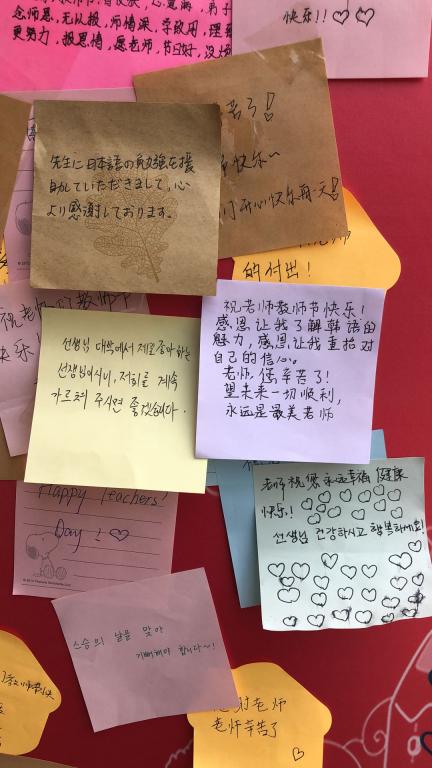 念师恩,无以报,师情深,学致用,理
更努力,报恩情,愿老师,节日好,没烦
快乐!!♡♡
苦了!
快乐~
们开心快乐每一天!
先生に日本語の勉強を援
助していただきまして、心
より感謝しております。
的付出!
祝老师教师节快乐!
感恩让我了解韩语的
魅力,感恩让我重拾对
自己的信心。
老师,您辛苦了!
望未来一切顺利,
永远是最美老师
祝老师们教师节
快乐!
선생님 대학에서 제일 좋아하는
선생님이시니, 저희를 계속
가르쳐 주시면 좋겠습니다.
老师祝您永远幸福 健康
快乐!
선생님 건강하시고 행복하세요!
Happy Teachers'
Day!♡
스승의 날을 맞아
기뻐해야 합니다~!
谢老师
老师辛苦了